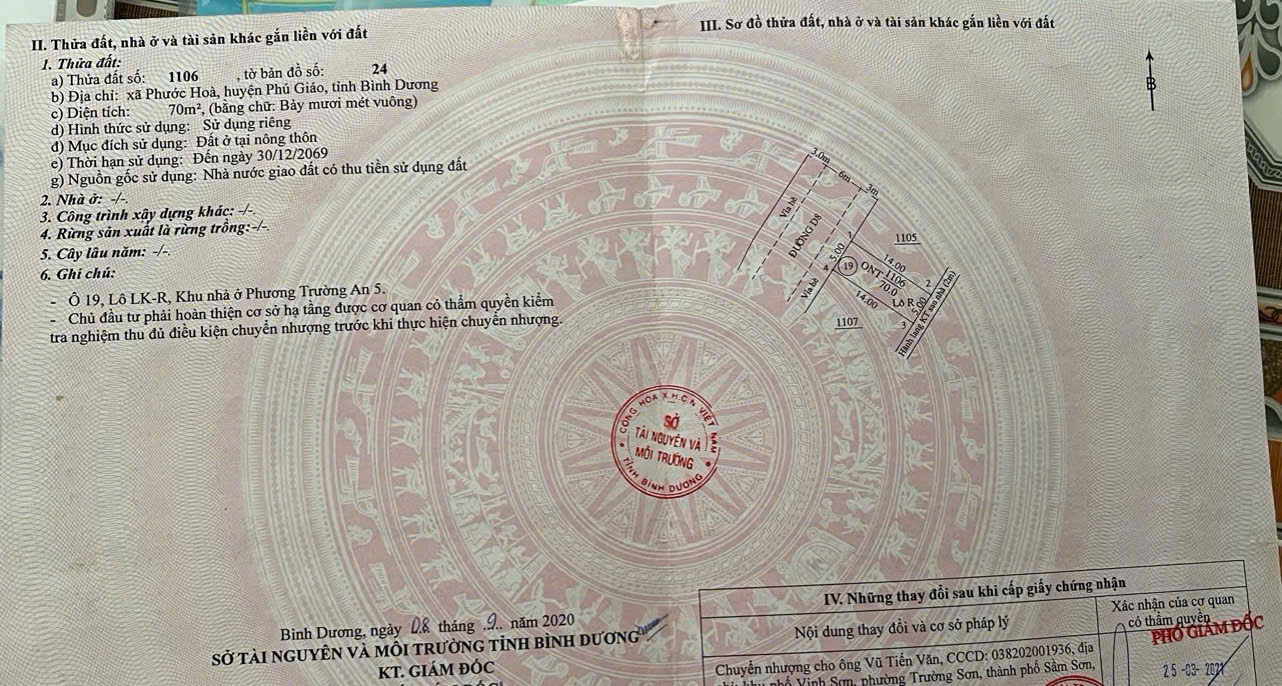 II. Thửa đất, nhà ở và tài sản khác gắn liền với đất
1. Thửa đất:
a) Thửa đất số: 1106 , tờ bản đồ số: 24
b) Địa chỉ: xã Phước Hoà, huyện Phú Giáo, tỉnh Bình Dương
c) Diện tích: 70m², (bằng chữ: Bảy mươi mét vuông)
d) Hình thức sử dụng: Sử dụng riêng
đ) Mục đích sử dụng: Đất ở tại nông thôn
e) Thời hạn sử dụng: Đến ngày 30/12/2069
g) Nguồn gốc sử dụng: Nhà nước giao đất có thu tiền sử dụng đất
2. Nhà ở: -/-.
3. Công trình xây dựng khác: -/-.
4. Rừng sản xuất là rừng trồng: -/-.
5. Cây lâu năm: -/-.
6. Ghi chú:
- Ô 19, Lô LK-R, Khu nhà ở Phương Trường An 5.
- Chủ đầu tư phải hoàn thiện cơ sở hạ tầng được cơ quan có thẩm quyền kiểm
tra nghiệm thu đủ điều kiện chuyển nhượng trước khi thực hiện chuyển nhượng.
Bình Dương, ngày 08 tháng .9.. năm 2020
SỞ TÀI NGUYÊN VÀ MÔI TRƯỜNG TỈNH BÌNH DƯƠNG
KT. GIÁM ĐỐC
CỘNG HOÀ X.H.C.N VIỆT NAM
SỞ
TÀI NGUYÊN VÀ
MÔI TRƯỜNG
TỈNH BÌNH DƯƠNG
III. Sơ đồ thửa đất, nhà ở và tài sản khác gắn liền với đất
B
3.0m
6m
3m
Vỉa hè
ĐƯỜNG D8
Vỉa hè
1105
1
5.00
14.00
2
4
19
ONT 1106
70.0
Lô R
5.00
14.00
3
1107
Hành lang KT sau nhà (2m)
IV. Những thay đổi sau khi cấp giấy chứng nhận
Nội dung thay đổi và cơ sở pháp lý
Xác nhận của cơ quan
có thẩm quyền
PHÓ GIÁM ĐỐC
Chuyển nhượng cho ông Vũ Tiến Văn, CCCD: 038202001936, địa
khu phố Vinh Sơn, phường Trường Sơn, thành phố Sầm Sơn,
25 -03- 2021